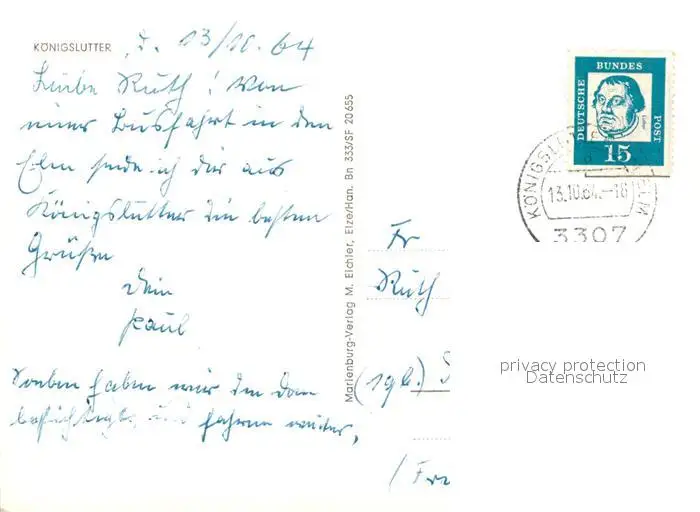 KÖNIGSLUTTER, d. 13/10.64
Liebe Ruth! Von
einer Busfahrt in den
Elm sende ich dir aus
Königslutter die besten
Grüße
Dein
Paul
Soeben haben wir den Dom
besichtigt und fahren weiter.
Marienburg-Verlag M. Eichler, Elze/Han. Bn 333/SF 20655
DEUTSCHE BUNDES POST
15
KÖNIGSLUTTER ELM
13.10.64.-16
3307
Fr
Ruth
(19b.)
/Fre
privacy protection
Datenschutz